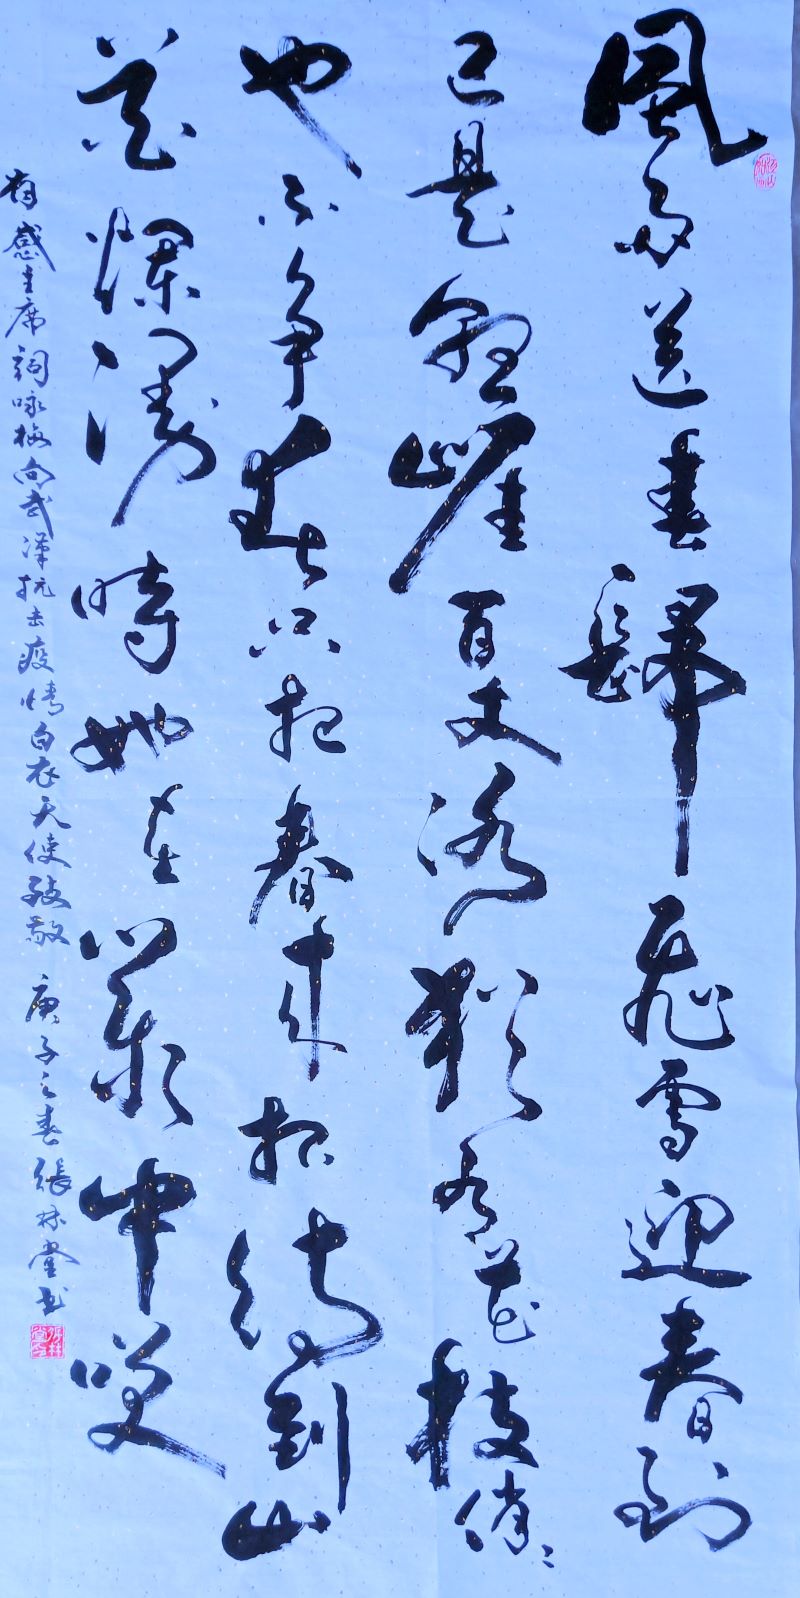 風雨送春歸飛雪迎春到
已是懸崖百丈冰猶有花枝俏〻
也不争春只把春来报待到山
花爛漫時她在叢中笑
有感主席詞咏梅向武漢抗击疫情白衣天使致敬 庚子之春張林堂书